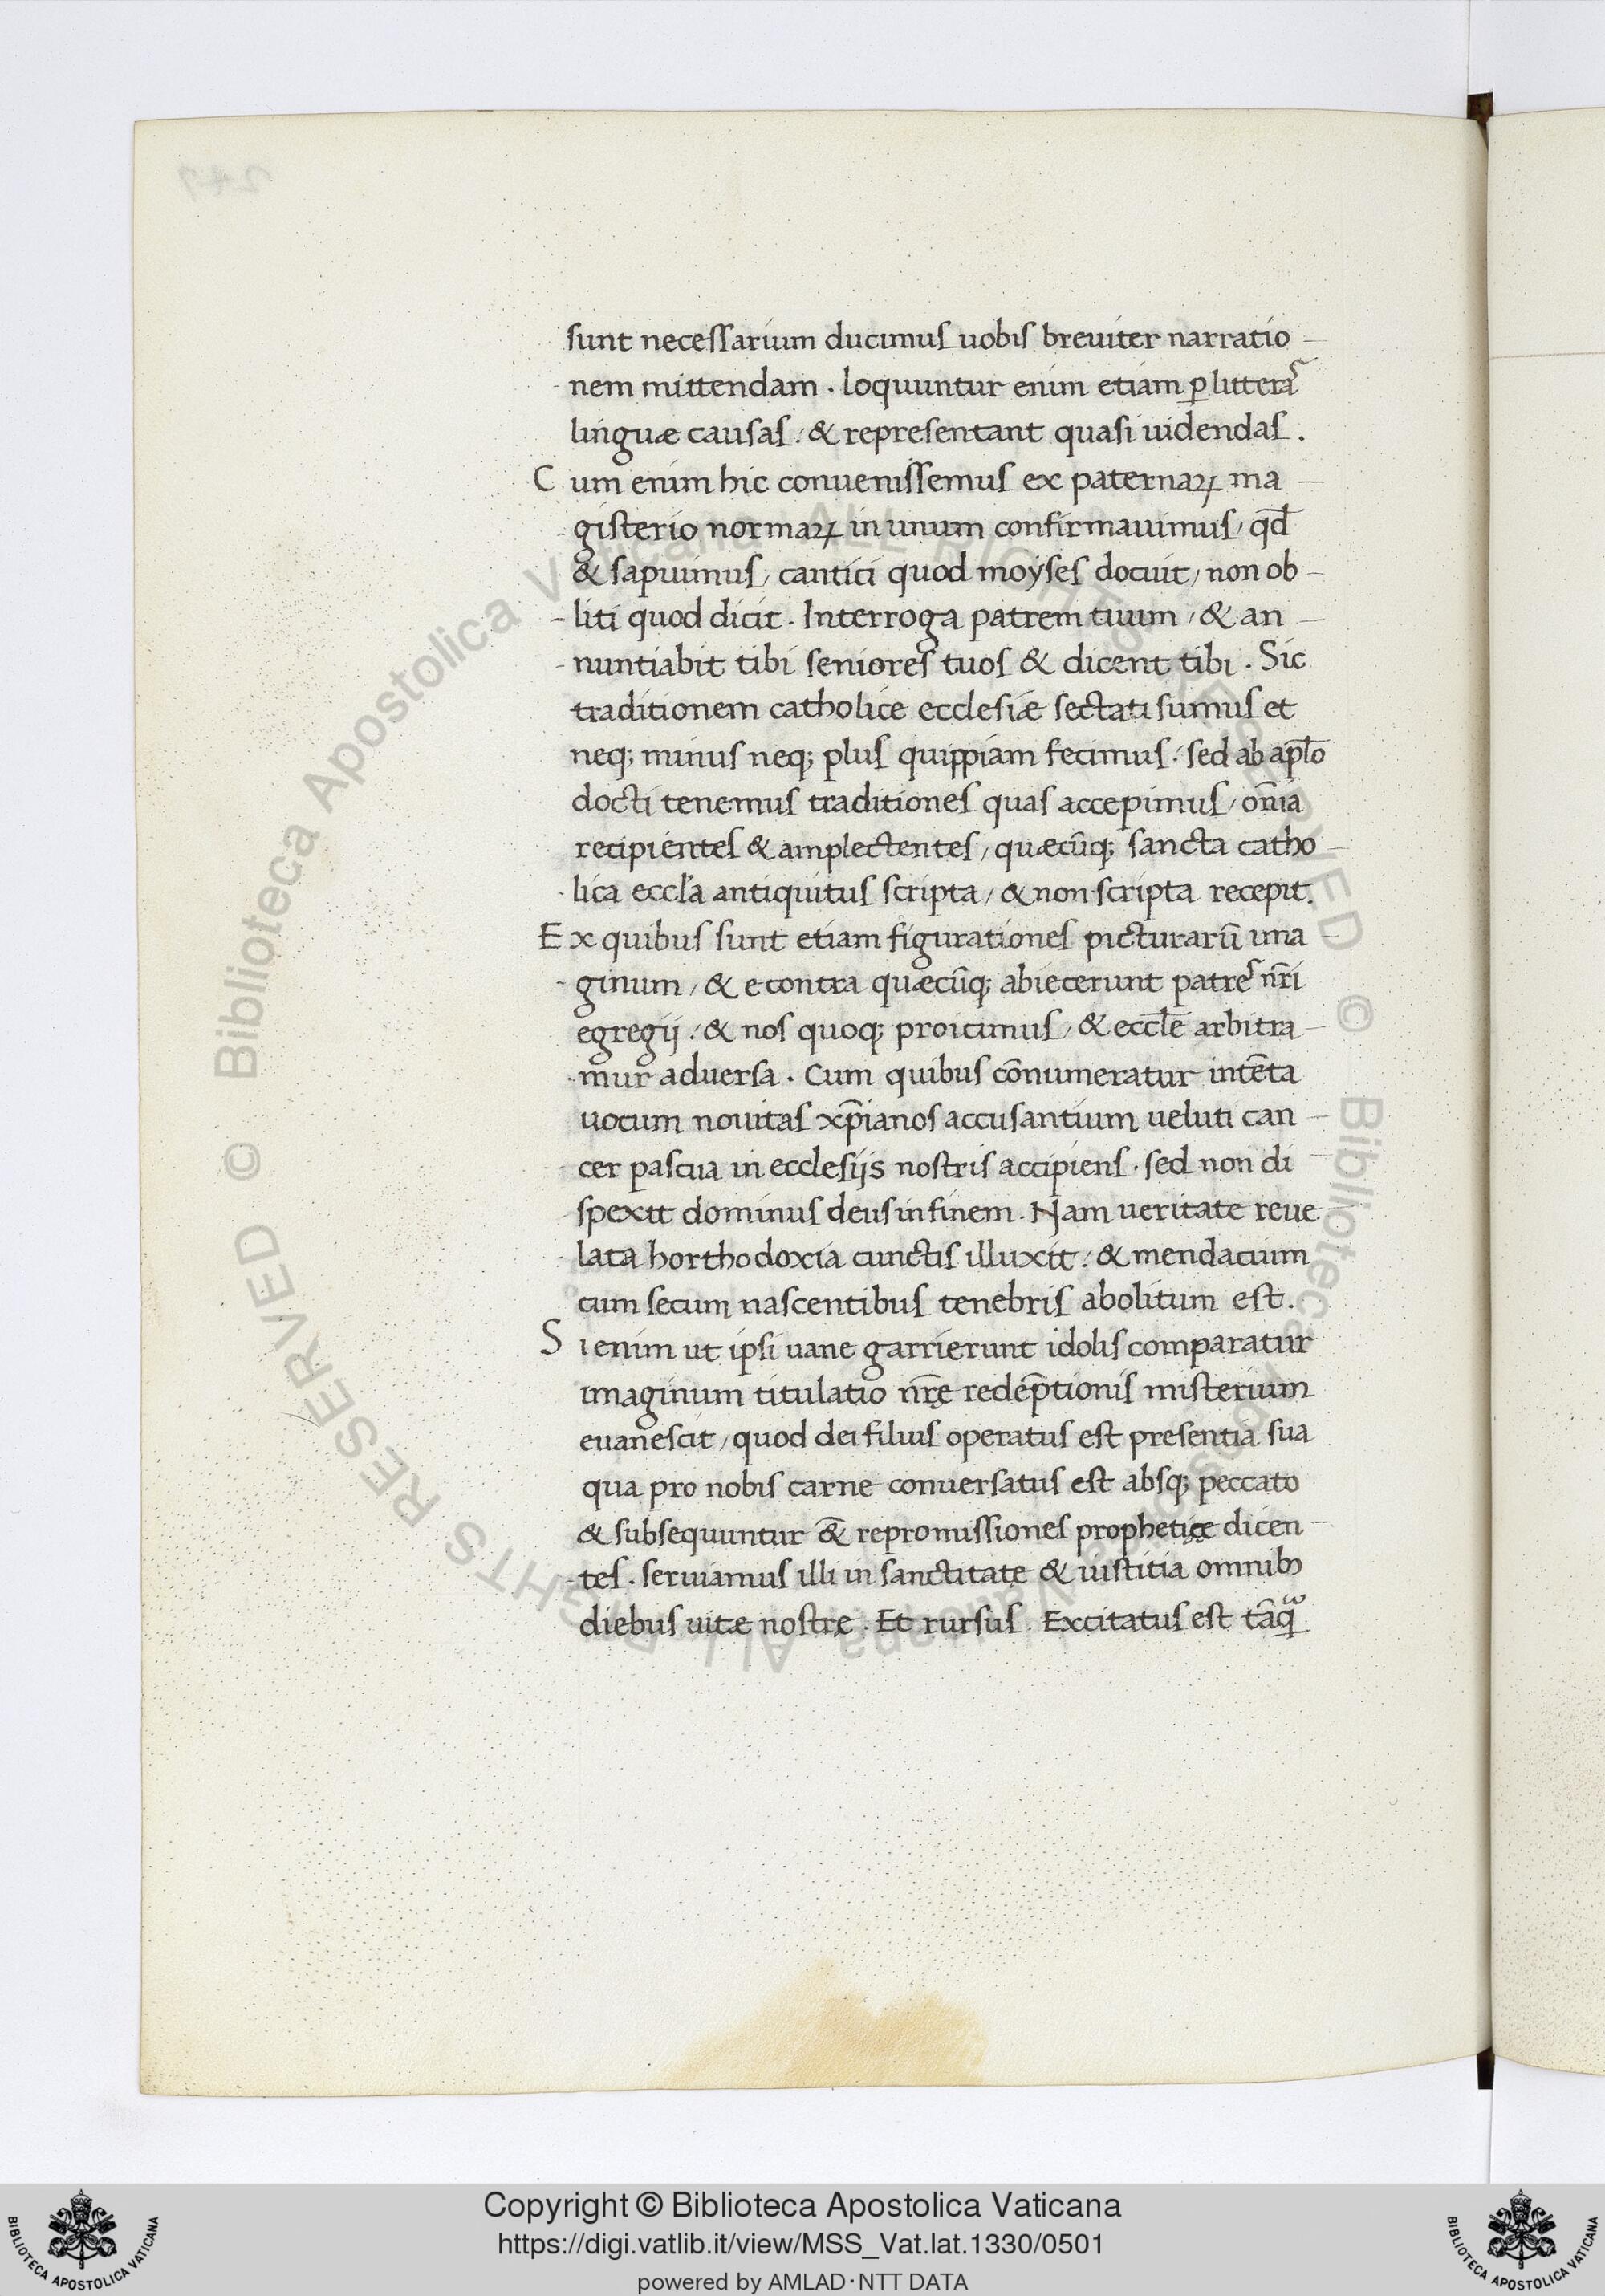 sunt necessarium ducimus uobis breuiter narratio
nem mittendam. loquuntur enim etiam ꝑ litteras
linguæ causas: & representant quasi uidendas.
Cum enim hic conuenissemus ex paternaꝝ ma
gisterio normaꝝ in unum confirmauimus, qd̄
& sapuimus, cantici quod moyses docuit, non ob
liti quod dicit. Interroga patrem tuum, & an
nuntiabit tibi seniores tuos & dicent tibi. Sic
traditionem catholice ecclesiæ sectati sumus et
neq; minus neq; plus quippiam fecimus: sed ab apl̄o
docti tenemus traditiones quas accepimus, om̄ia
recipientes & amplectentes, quæcūq; sancta catho
lica eccl̄ia antiquitus scripta, & non scripta recepit.
Ex quibus sunt etiam figurationes picturarū ima
ginum, & e contra quæcūq; abiecerunt patres nr̄i
egregij: & nos quoq; proicimus, & eccl̄e arbitra
mur aduersa. Cum quibus cōnumeratur intēta
uocum nouitas xp̄ianos accusantium ueluti can
cer pascua in ecclesijs nostris accipiens. sed non di
spexit dominus deus in finem. Nam ueritate reue
lata horthodoxia cunctis illuxit: & mendacium
cum secum nascentibus tenebris abolitum est.
Si enim ut ipsi uane garrierunt idolis comparatur
imaginum titulatio nr̄ę redēptionis misterium
euanescit, quod dei filius operatus est presentia sua
qua pro nobis carne conuersatus est absq; peccato
& subsequuntur &̄ repromissiones prophetięe dicen
tes. seruiamus illi in sanctitate & iustitia omnibꝫ
diebus uitæ nostrę. Et rursus. Excitatus est tāq̃
Copyright © Biblioteca Apostolica Vaticana
https://digi.vatlib.it/view/MSS_Vat.lat.1330/0501
powered by AMLAD·NTT DATA
BIBLIOTECA APOSTOLICA VATICANA
BIBLIOTECA APOSTOLICA VATICANA
© Biblioteca Apostolica Vaticana ALL RIGHTS RESERVED © Biblioteca Apostolica Vaticana ALL RIGHTS RESERVED